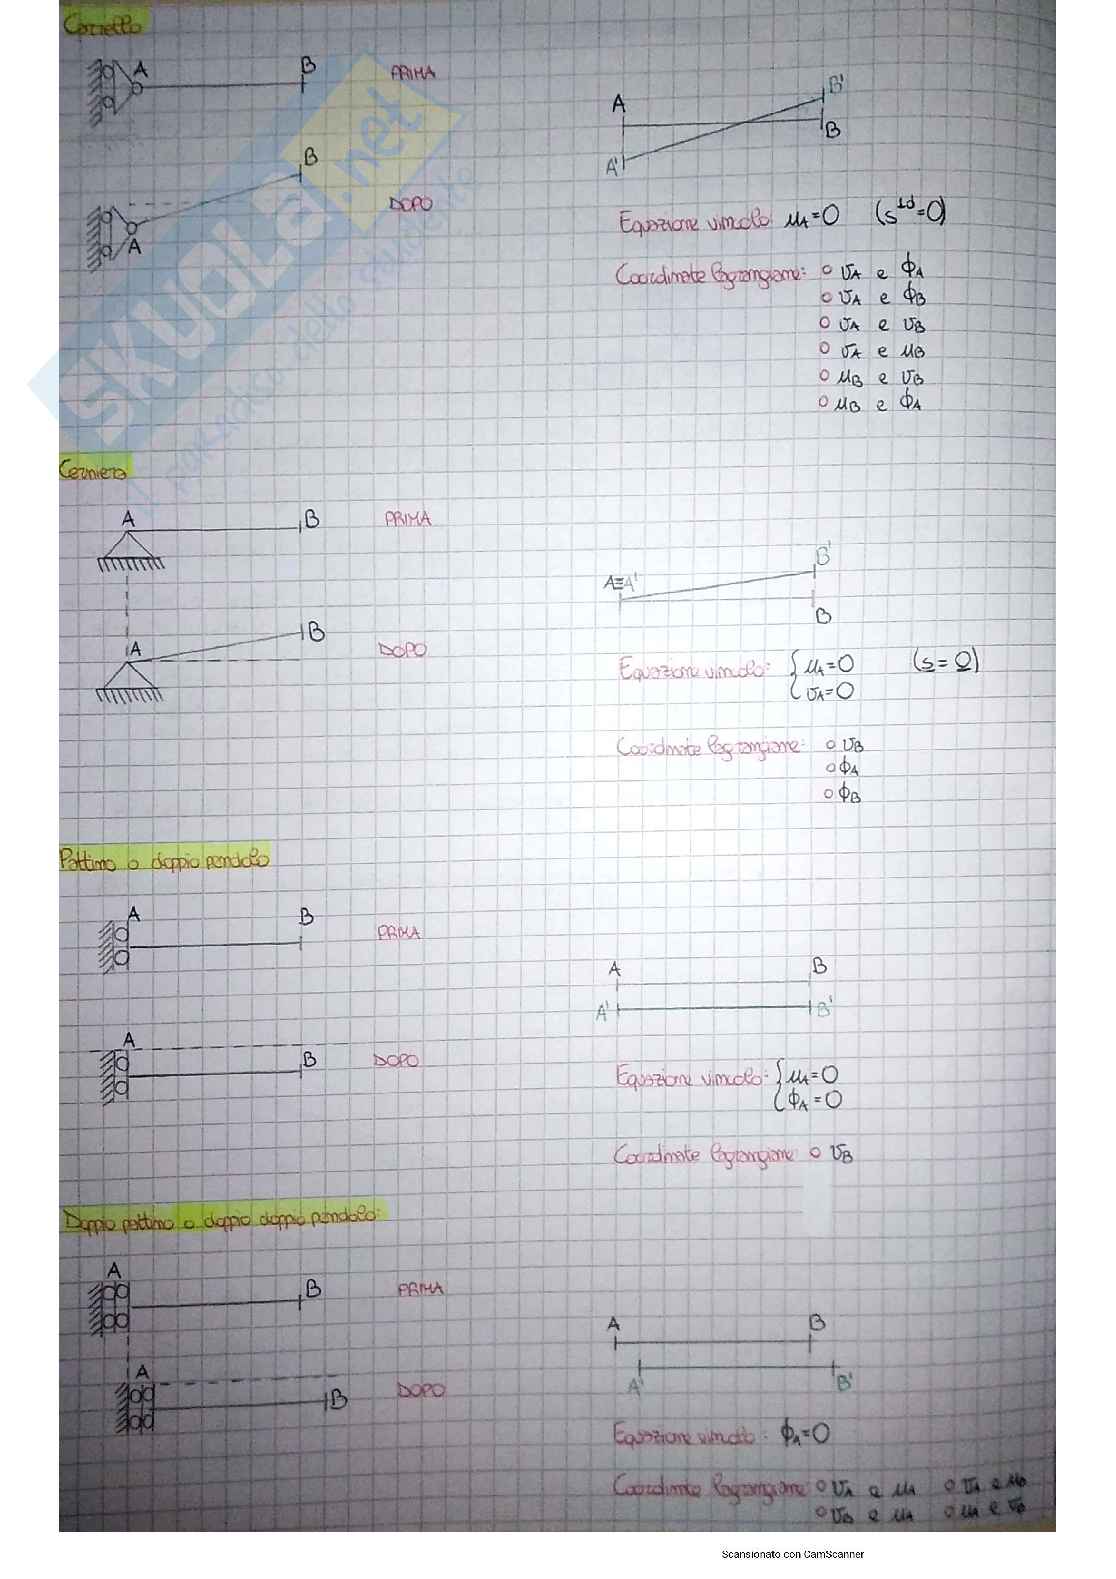 Carrello
A B PRIMA
A B' B A'
B DOPO
A
Equazione vincolo μA=0 (s^id=0)
Coordinate lagrangiane: o vA e ϕA
o vA e ϕB
o vA e vB
o vA e μB
o μB e vB
o μB e ϕA
Cerniera
A B PRIMA
A≡A' B'
B
A B DOPO
Equazione vincolo: { μA=0 (s=0)
vA=0
Coordinate lagrangiane: o vB
o ϕA
o ϕB
Pattino o doppio pendolo
A B PRIMA
A B
A' B'
A B DOPO
Equazione vincolo: { μA=0
ϕA=0
Coordinate lagrangiane o vB
Doppio pattino o doppio doppio pendolo:
A B PRIMA
A B
A' B'
A B DOPO
Equazione vincolo: ϕA=0
Coordinate lagrangiane o vA e μA o vA e μB
o vB e μA o μA e vB
SKUOLA.net
Scansionato con CamScanner